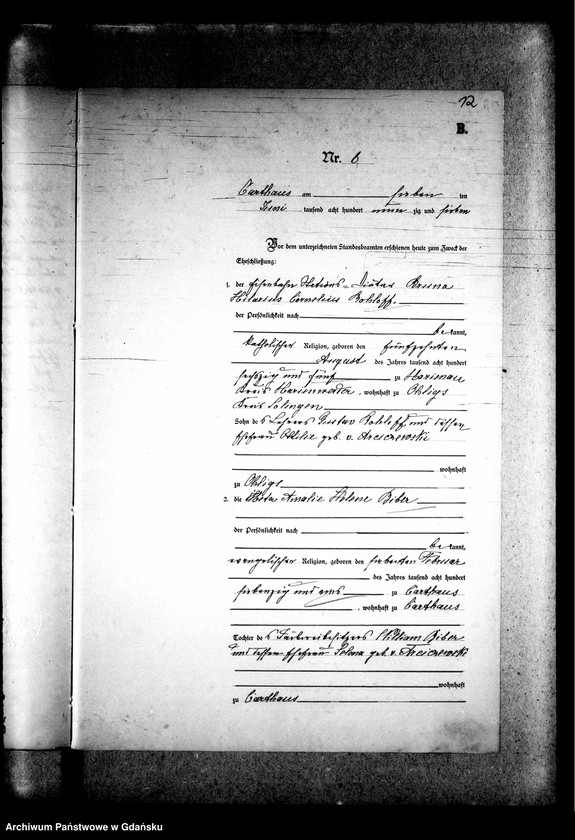 12
B.
Nr. 6
Carthaus am sieben ten
Juni tausend acht hundert neun zig und sieben
Vor dem unterzeichneten Standesbeamten erschienen heute zum Zweck der
Eheschließung:
1. der Eisenbahn Stations-Diätar Bruno
Hilarius Cornelius Rohloff.
der Persönlichkeit nach
be kannt,
katholischer Religion, geboren den fünfzehnten
August des Jahres tausend acht hundert
sechszig und fünf zu
Kreis Marienwerder, wohnhaft zu Ohligs
Kreis Solingen
Sohn des Lehrers Gustav Rohloff und dessen
Ehefrau Ottilie geb. v. Arciczewski
wohnhaft
zu Ohligs
2. die Meta Amalie Helene Biber
der Persönlichkeit nach
be kannt,
evangelischer Religion, geboren den siebenten Februar
des Jahres tausend acht hundert
siebenzig und eins zu Carthaus
, wohnhaft zu Carthaus
Tochter des Färbereibesitzers William Biber
und dessen Ehefrau geb. v. Arciczewski
wohnhaft
zu Carthaus
Archiwum Państwowe w Gdańsku